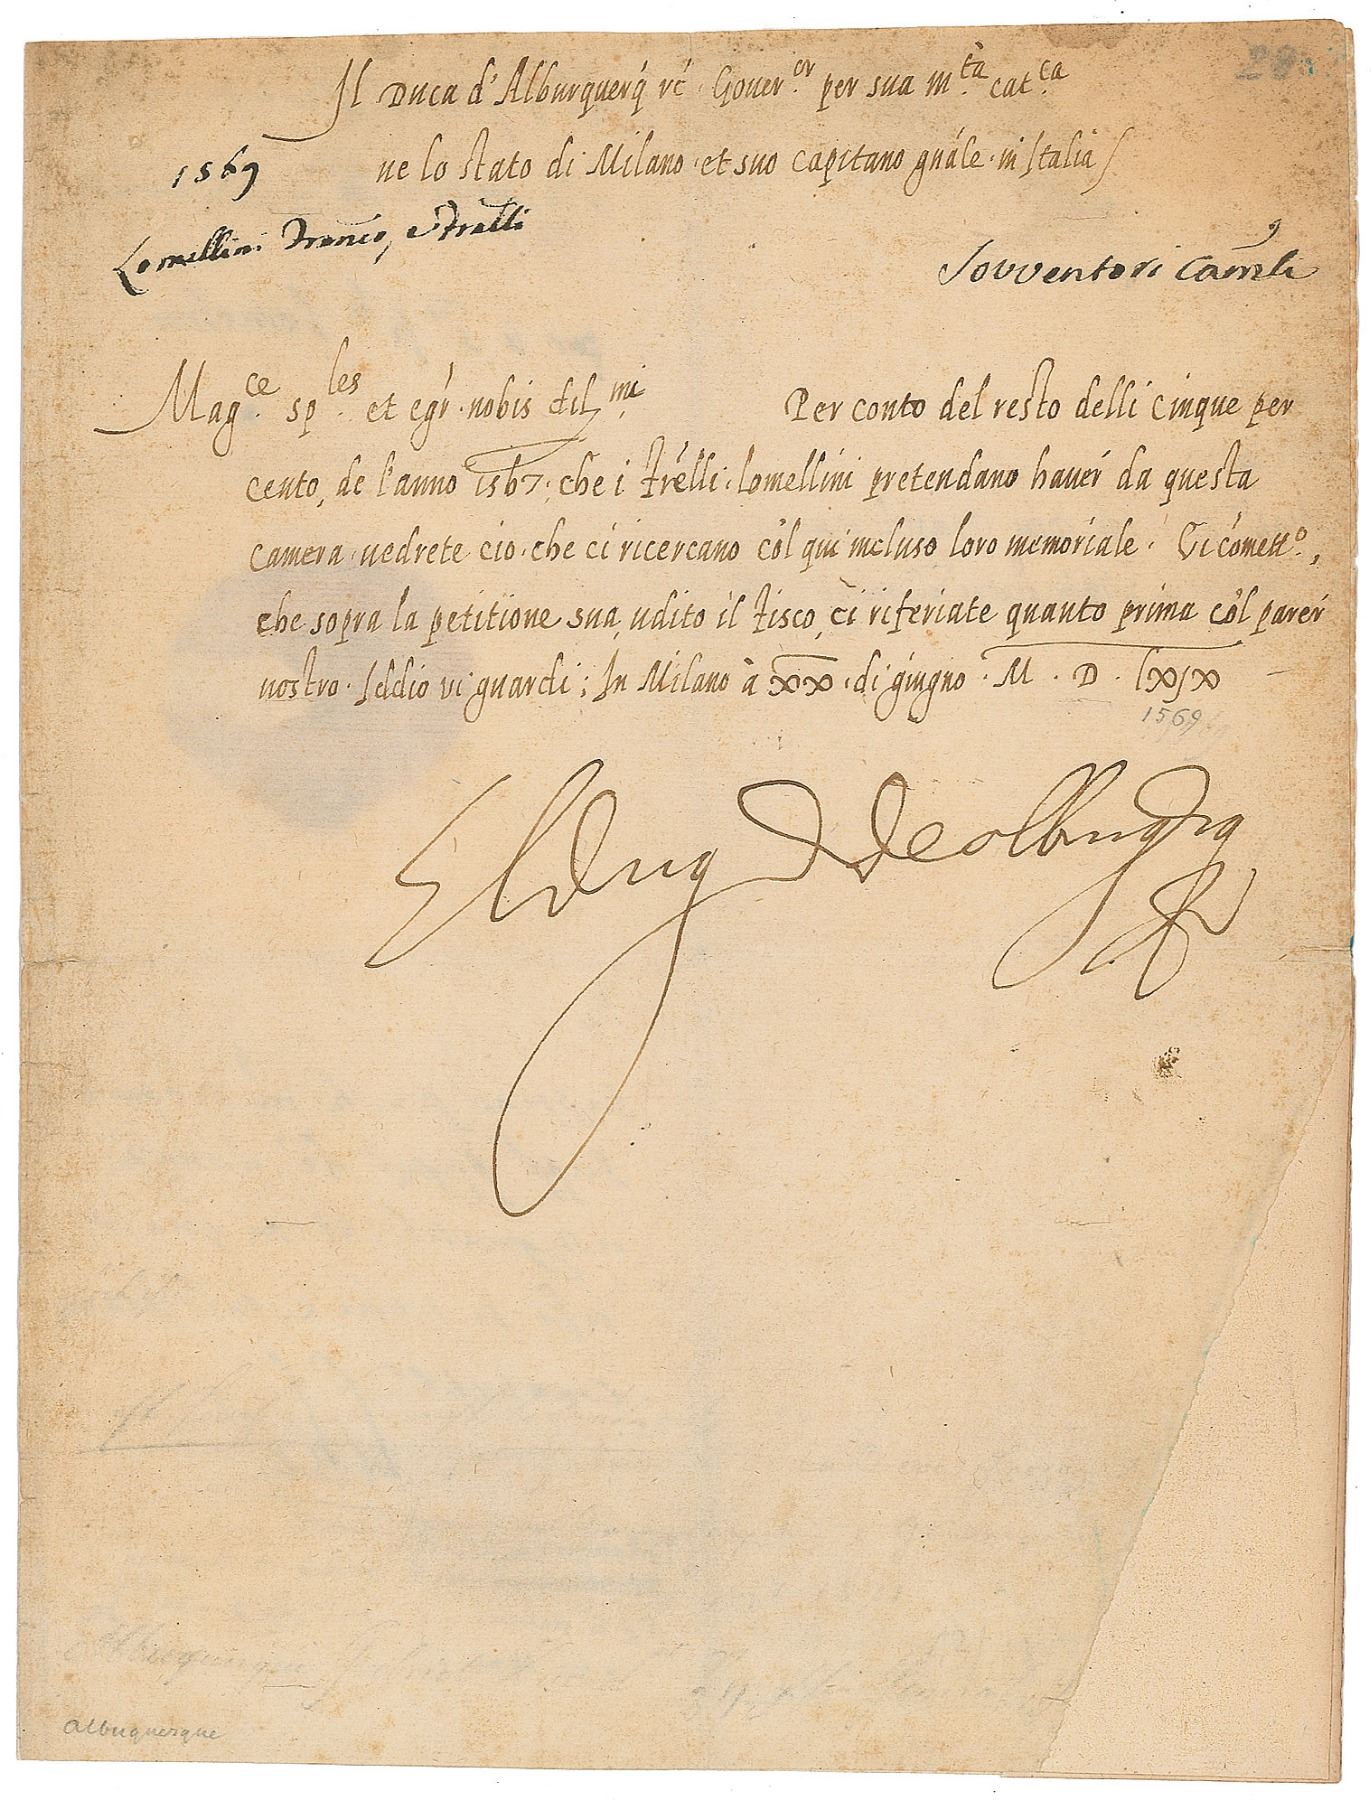 Il Duca d'Alburquerq̃ rc̃ Gover.or per sua M.tà cat.ca
ne lo stato di Milano et suo capitano gñale in Italia
1569
Lomellini Franco, e Fratłi
Sovventori Camłi
Mag.ce sp.les et egr. nobis dil.mi Per conto del resto delli cinque per
cento, de l'anno 1567. che i frẽlli lomellini pretendano haver da questa
camera vedrete cio che ci ricercano cõl qui incluso loro memoriale. Vi cõmett.o,
che sopra la petitione sua, udito il fisco, ci riferiate quanto prima cõl parer
vostro. Iddio vi guardi; In Milano à XX di giugno. M. D. lxix
1569
El duq̃ de alburq̃rq̃
albuquerque